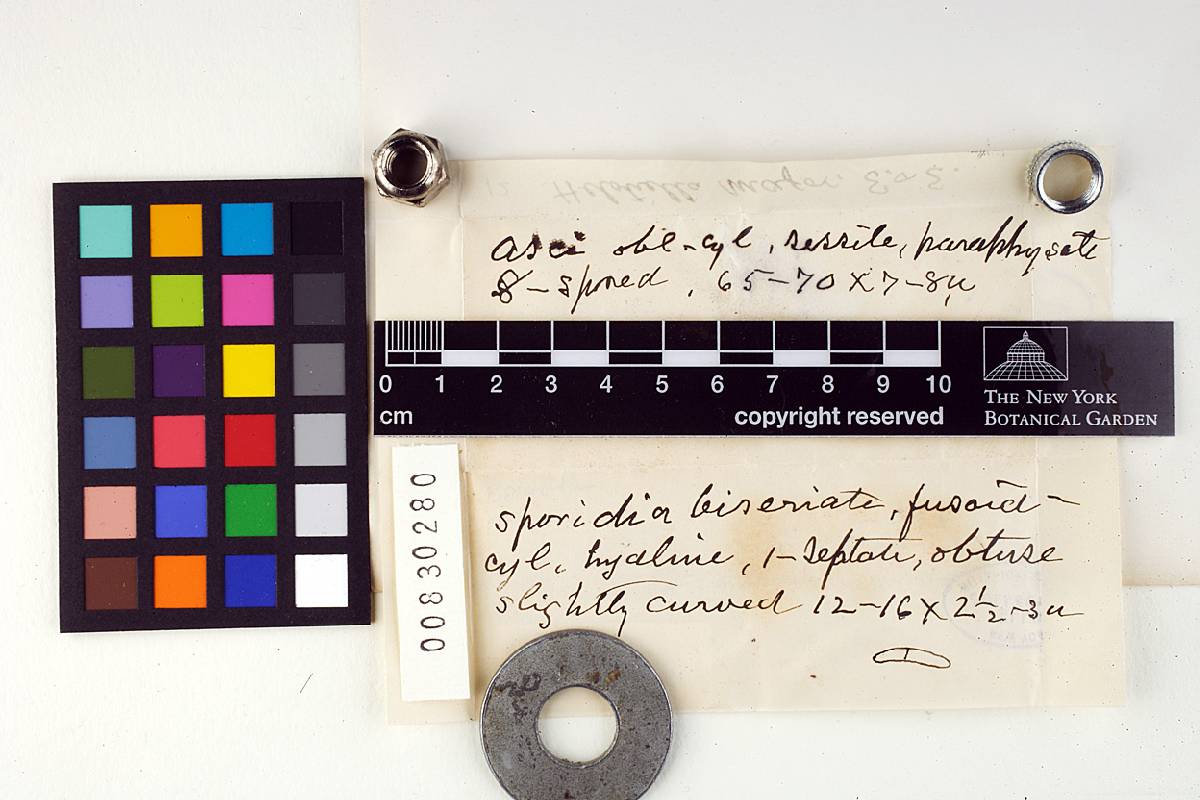 asci obl-cyl, sessile, paraphysate
8-spored, 65-70 x 7-8µ
0 1 2 3 4 5 6 7 8 9 10
cm copyright reserved
THE NEW YORK
BOTANICAL GARDEN
00830280
sporidia biseriate, fusoid-
cyl, hyaline, 1-septate, obtuse
slightly curved 12-16 x 2½-3µ